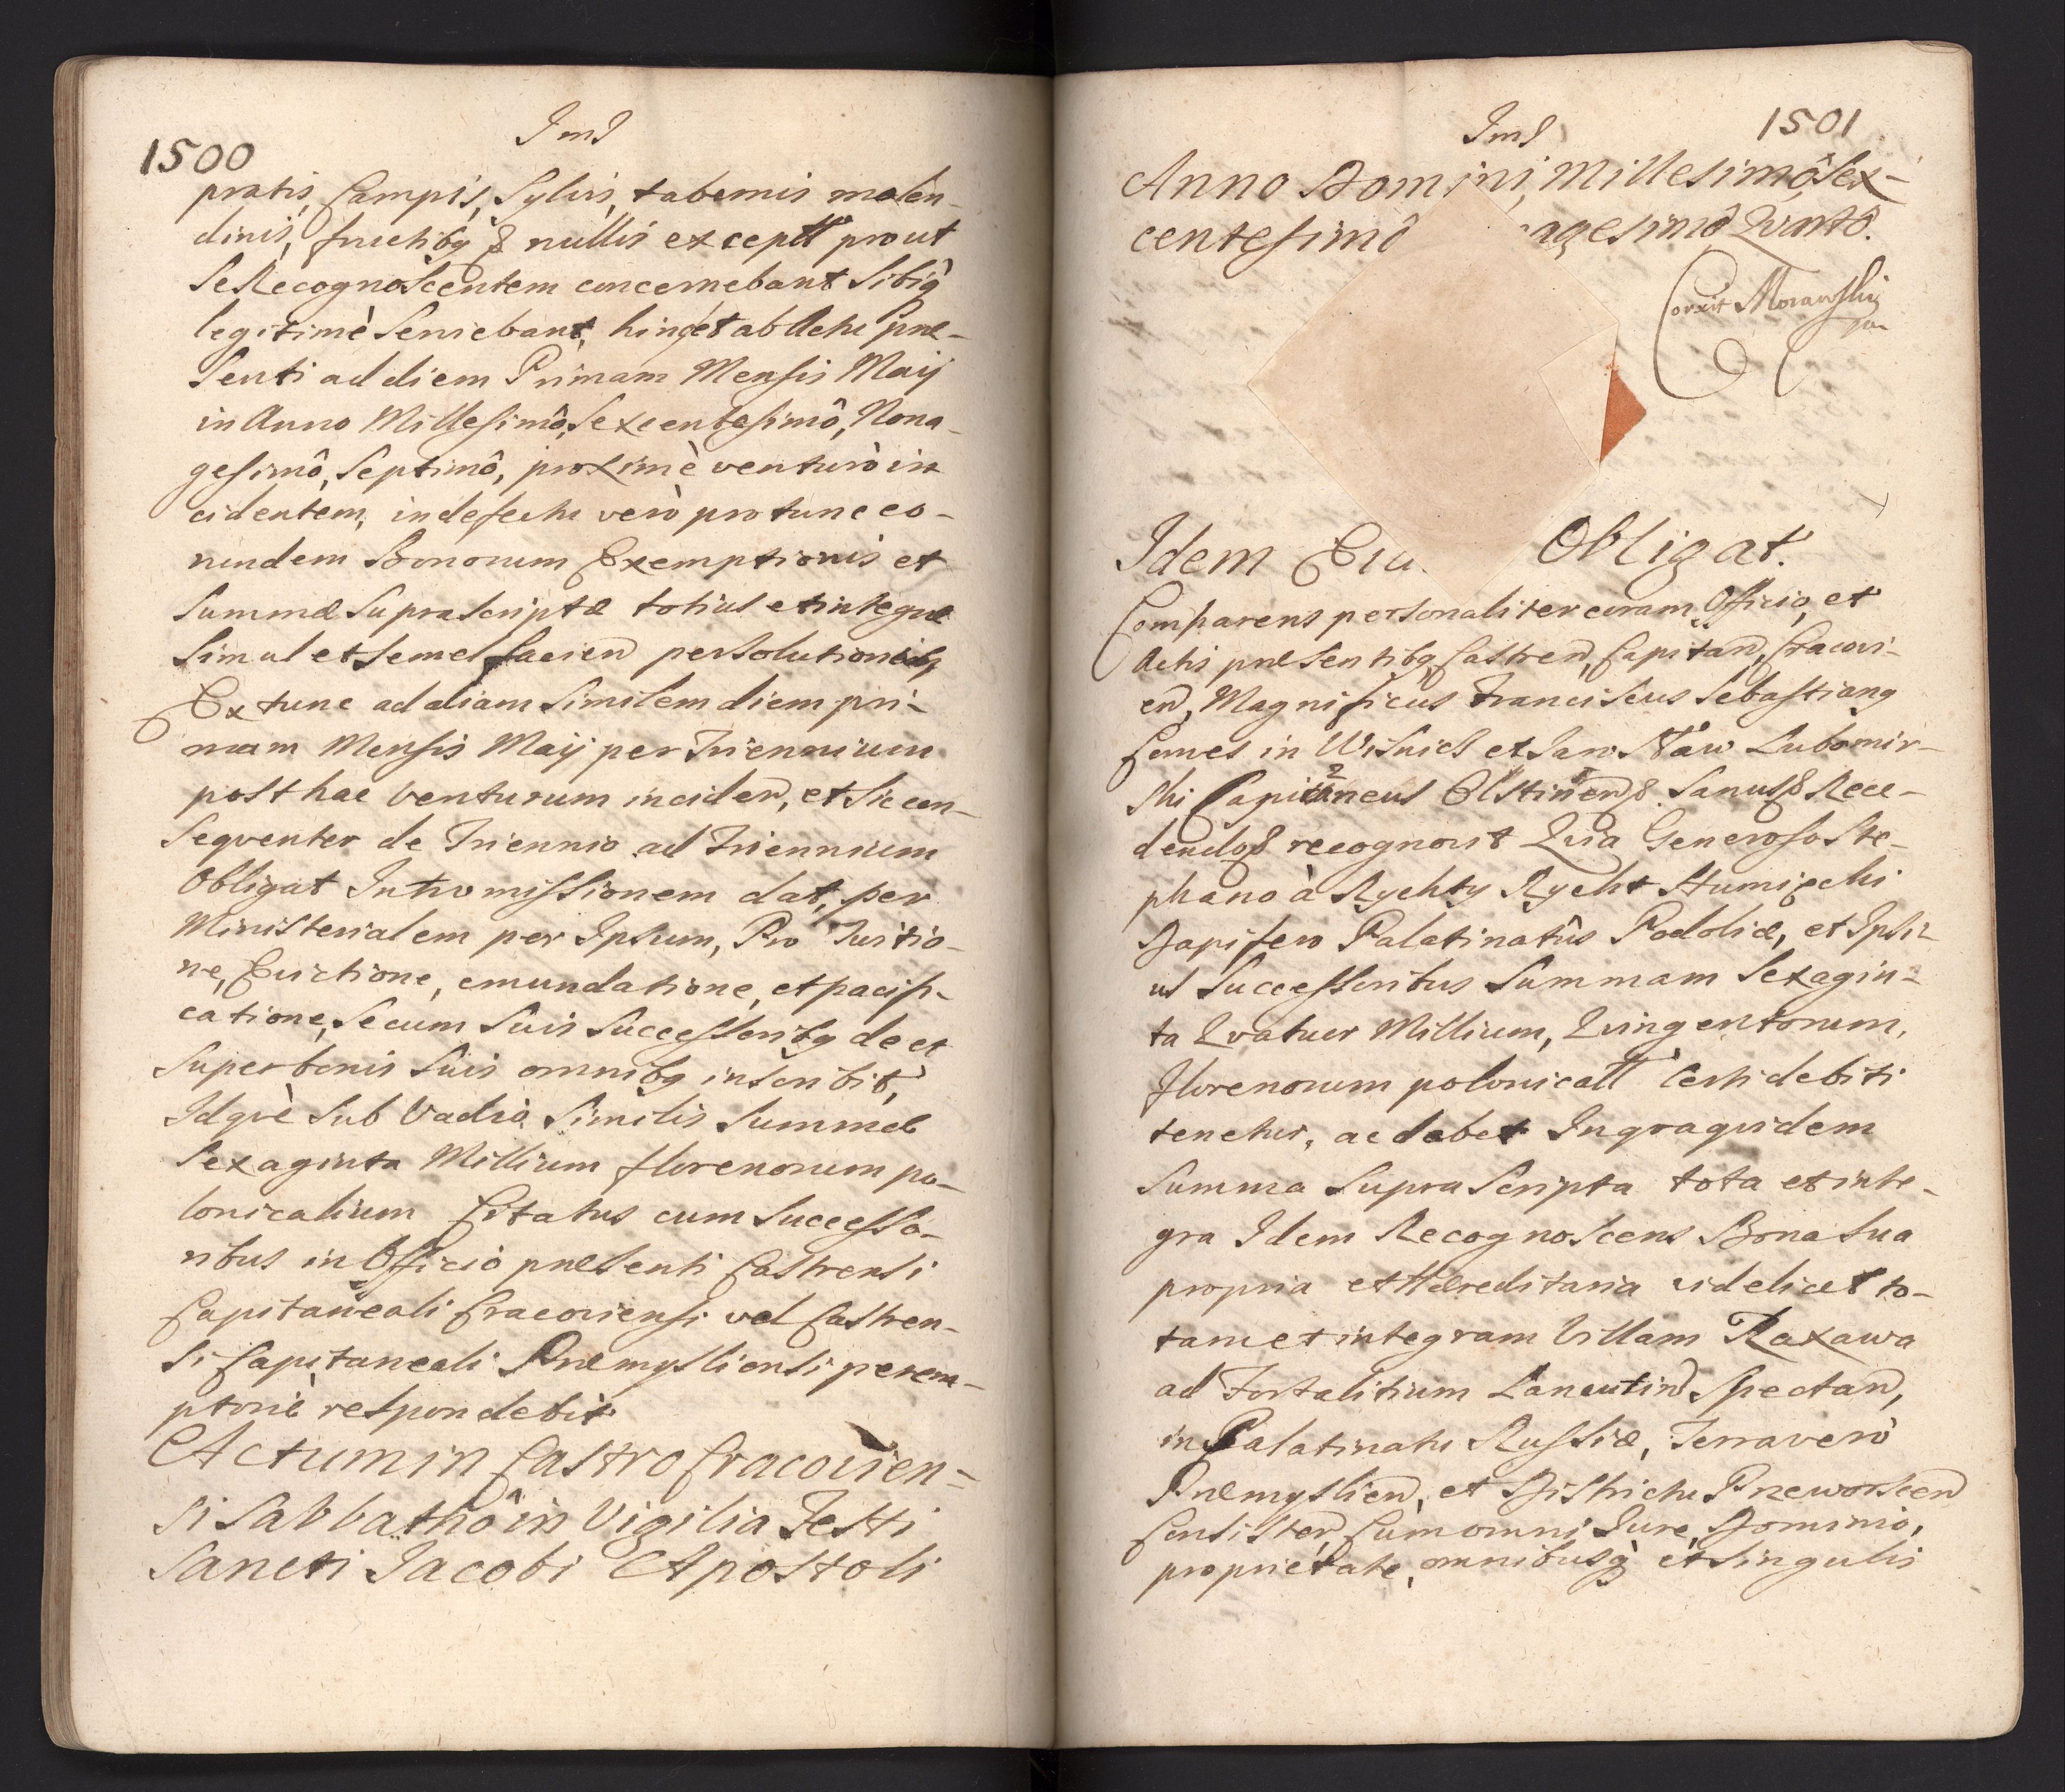 1500
Ind
pratis, Campis, Sylvis, tabernis molen-
dinis, fructibq & nullis exceptt prout
Se Recognoscentem concernebant Sibiq
legitimè Serviebant, hinc et ab Actu præ-
Senti ad diem Primam Mensis Maij
in Anno Millesimô, Sexcentesimô, Nona-
gesimô, Septimô, proximè venturò in
cidentem, in defectu verò pro tunc eo-
rundem Bonorum Exemptionis et
Summæ Supra Scriptæ totius et integræ
Simul et Semel facien persolutionis
Ex tunc ad aliam Similem diem pri-
mam Mensis Maij per Triennium
post hac venturum inciden, et Sic con-
Seqventer de Triennio ad Triennium
Obligat Intromissionem dat, per
Ministerialem per Ipsum, Pro Tuitio-
ne, Evictione, emundatione, et pacifi-
catione, Secum Suis Successoribq de et
Super bonis Suis omnibq inscribit,
Idqvè Sub Vadio Similis Summæ
Sexaginta Millium florenorum po-
lonicalium Citatus cum Successo-
ribus in Officiô præsenti Castrensi
Capitaneali Cracoviensi vel Castren-
si Capitaneali Præmysliensi perem-
ptoriè respondebit
Actum in Castro Cracovien-
si Sabbathô in Vigilia Festi
Sancti Jacobi Apostoli
Ind
1501
Anno Domini Millesimô, Sex-
centesimô agesimô Qvintô.
Correxit Morawski
Idem Obligat.
Comparens personaliter coram Officio, et
Actis præsentibq Castren, Capitan, Cracovi-
en, Magnificus Franciscus Sebastianq
Comes in Wisnicz et Jaroslaw Lubomir-
ski Capitaneus Olstinen & Sanus & Rece-
dendo & recognovit Qvia Generoso Ste-
phano à Rychty Rycht Humięcki
Dapifero Palatinatûs Podoliæ, et Ipsi-
us Successoribus Summam Sexagin-
ta Qvatuor Millium, Qvingentorum,
florenorum polonicall Certi debiti
tenetur, ac debet In qva qvidem
Summa Supra Scripta tota et inte-
gra Idem Recognoscens Bona Sua
propria et Hæreditaria videlicet to-
tam et integram Villam Rakzawa
ad Fortalitium Lancutin Spectan,
in Palatinatu Russiæ, Terra verò
Præmyslien, et Districtu Przeworscen
Consisten, Cum omni Jure, Dominio,
proprietate, omnibusq et Singulis